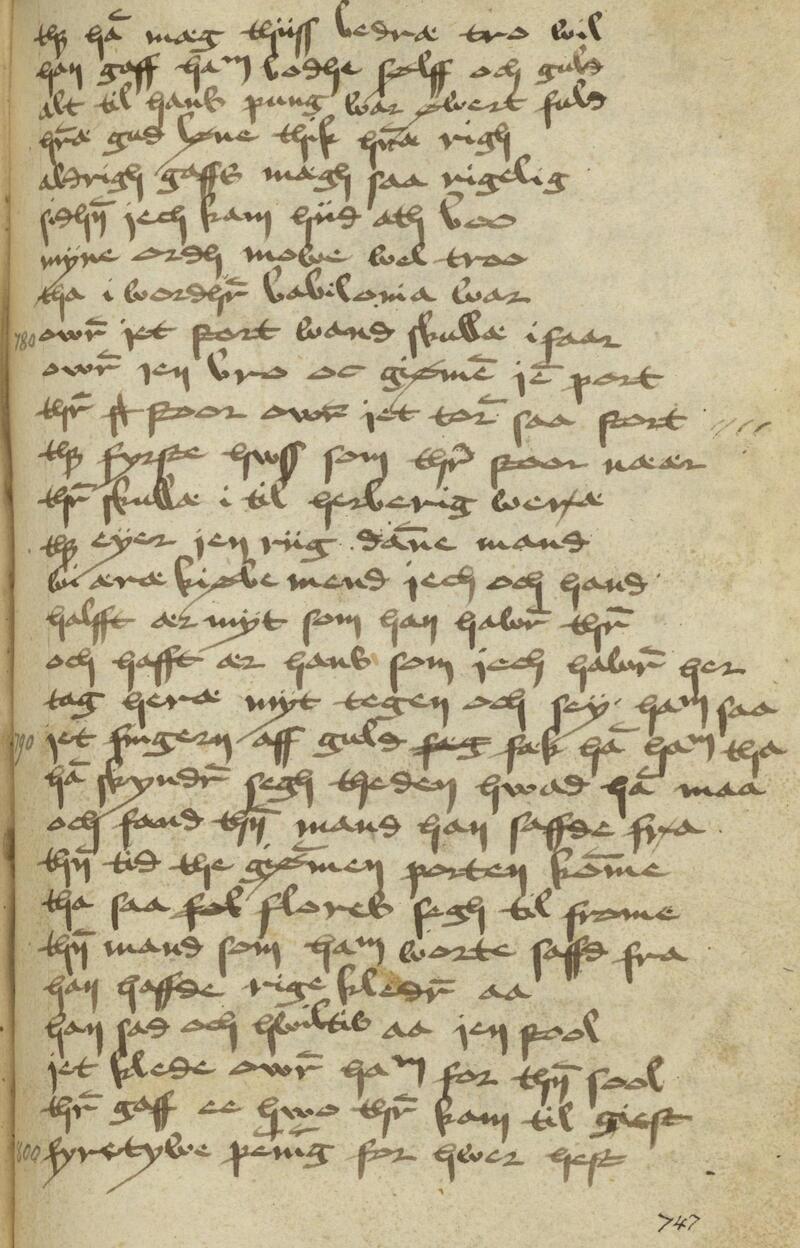 thz hā mæg thüss bedræ tro wil
han gaff haᵐ bodhe sølff och guld
alt til hans pung war øwert fuld
hr̄æ gud løne thik hr̄æ righ
aldrigh gaffs mægh saa rigelig
sidhn̄ jech kam hiid ath boo
myne ordh mowe wel troo
tha i wordhr̄ babilonia war
780 owr̄ jet stort wand skullæ i faar
owr̄ jen bro oc giømē jē port
thr̄ stoor owr̄ jet tor̄ saa stort
thz fyrste hwss som thr̄ stoor næær
thr̄ skullæ i til herberig weræ
thz eyer jen riig dāne mand
wi æræ kiøbe mend jech och hand
halfft ær myt som han hawr̄ thr̄
och hafft ær hans som jech hawr̄ her
tag heræ myt tegen och sey haᵐ saa
790 jet fingern aff guld fak hā haᵐ tha
hā skyndr̄ segh theden hwad hā maa
och fand thn̄ mand han saffde fra
thn̄ tid the giømen porten kōme
tha saa flores segh til frome
thn̄ mand som haᵐ worte saffd fra
han haffde rige kledr̄ aa
han sad och hwiltis aa jen stool
jet klede owr̄ haᵐ for thn̄ sool
thr̄ gaff ee hwo thr̄ kam til giest
800 fyretywe pēnīg for hwer hest
747